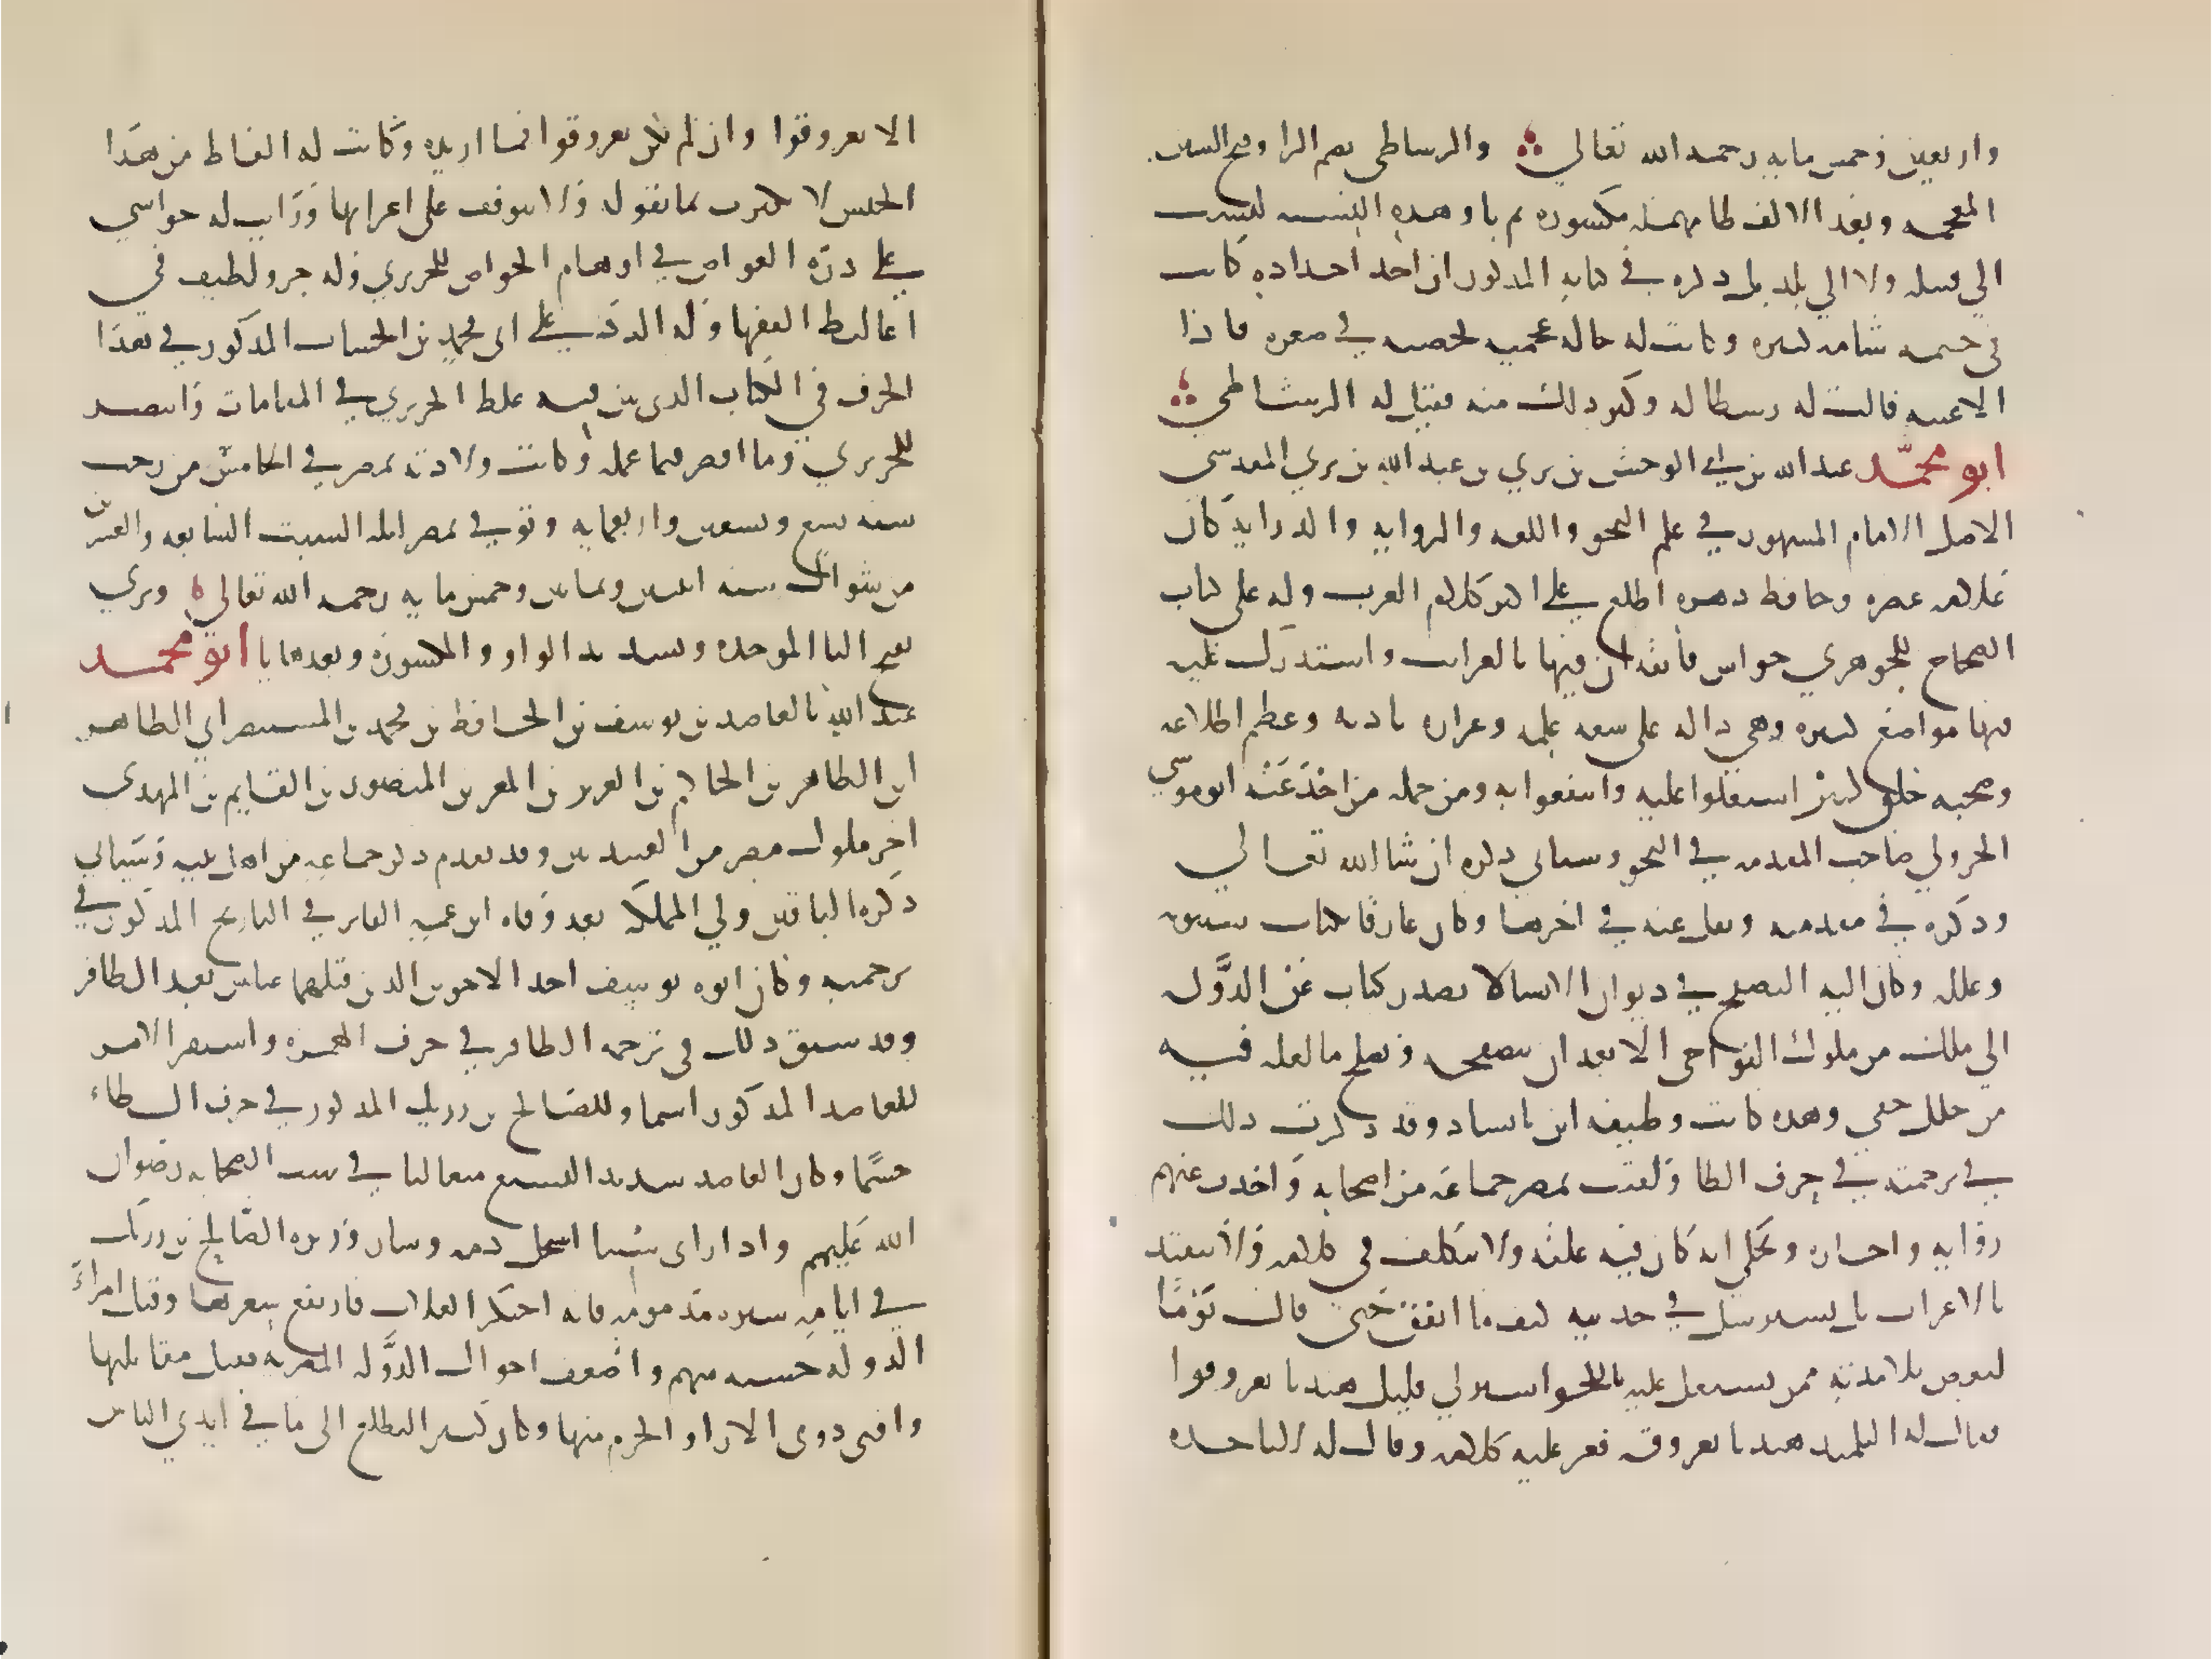 واربعين وخمس مايه رحمه الله تعالى والرشاطي بضم الرا وفتح الشين
المعجمه وبعد الالف طا مهمله مكسوره ثم يا وهذه النسبه ليست
الي قبيله ولا الي بلد بل ذكره في كتابه المذكور ان احد اجداده كانت
في جسمه شامه كبيره وكانت له حاله عجميه تحضنه في صغره فاذا
لاعبته قالت له رشطاله وكثر ذلك منه فقيل له الرشاطي
ابو محمد عبد الله بن ابي الوحش بن بري بن عبد الله بن بري المقدسي
الاصل الامام المشهور في علم النحو واللغه والروايه والدرايه كان
علامه عصره وحافظ دهره اطلع علي اكثر كلام العرب وله على كتاب
الصحاح للجوهري حواش فايقه اتي فيها بالغرايب واستدرك عليه
فيها مواضع كثيره وهي داله على سعه علمه وغزاره مادته وعظم اطلاعه
وصحبه خلق كثير اشتغلوا عليه وانتفعوا به ومن جمله من اخذ عنه ابو موسي
الجزولي صاحب المقدمه في النحو وسياتي ذكره ان شا الله تعالي
وذكره في مقدمته ونقل عنه في اخرها وكان عارفا بكتاب سيبويه
وعلله وكان اليه التصفح في ديوان الانشا لا يصدر كتاب عن الدوله
الى ملك من ملوك النواحي الا بعد ان يتصفحه ويصلح ما لعله فيه
من خلل خفي وهذه كانت وظيفه ابن بابشاذ وقد ذكرت ذلك
في ترجمته في حرف الطا ولقيت بمصر جماعه من اصحابه واخذت عنهم
روايه واجازه ويحكي انه كان فيه غفله ولا يتكلف في كلامه ولا يتقيد
بالاعراب بل يسترسل في حديثه كيف ما اتفق حتى قال يوما
لبعض تلامذته ممن يشتغل عليه بالنحو اشتر لي قليل هندبا بعروقوا
فقال له التلميذ هندبا بعروقه فعز عليه كلامه وقال له لا تاخذه
الا بعروقوا وان لم يكن بعروقوا فما اريده وكانت له الفاظ من هذا
الجنس لا يكترث بما يقوله ولا يتوقف على اعرابها ورايت له حواشي
علي دره الغواص في اوهام الخواص للحريري وله جزو لطيف في
اغاليط الفقها وله الرد علي ابي محمد بن الخشاب المذكور في هذا
الحرف في الكتاب الذي بين فيه غلط الحريري في المقامات وانتصر
للحريري وما اقصر فيما عمله وكانت ولادته بمصر في الخامس من رجب
سنه تسع وتسعين واربعمايه وتوفي بمصر ليله السبت السابعه والعشرين
من شوال سنه اثنتين وثمانين وخمس مايه رحمه الله تعالي وبري
بفتح البا الموحده وتشديد الواو والمكسوره وبعدها يا ابو محمد
عبد الله بالعاضد بن يوسف بن الحافظ بن محمد بن المستنصر ابي الظاهر
ابن الظاهر بن الحاكم بن العزيز بن المعز بن المنصور بن القايم بن المهدي
اخر ملوك مصر من العبيديين وقد تقدم ذكر جماعه من اهل بيته وسياتي
ذكر الباقين ولي المملكه بعد وفاه ابن عمه الفايز في التاريخ المذكور في
ترجمته وكان ابوه يوسف احد الاخوين الذين قتلهما عباس بعد الظافر
وقد سبق ذلك في ترجمه الظافر في حرف الهمزه واستقر الامر
للعاضد المذكور اسما وللصالح بن رزيك المذكور في حرف الطاء
جسما وكان العاضد شديد التشيع متغاليا في سب الصحابه رضوان
الله عليهم واذا راى سنيا استحل دمه وسار وزيره الصالح بن رزيك
في ايامه سيره مذمومه فانه احتكر الغلات فارتفع سعرها وقتل امراء
الدوله خشيه منهم واضعف احوال الدوله المصريه فقتل مقاتليها
وافنى ذوى الارا والحزم منها وكان كثير التطلع الى ما في ايدي الناس